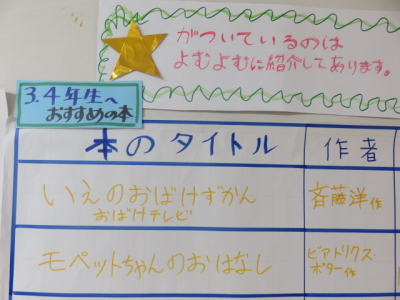 がついているのは
よむよむに紹介してあります。
3.4年生へ
おすすめの本
本のタイトル
作者
いえのおばけずかん
おばけテレビ
斉藤洋作
モペットちゃんのおはなし
ビアトリクス・
ポター作